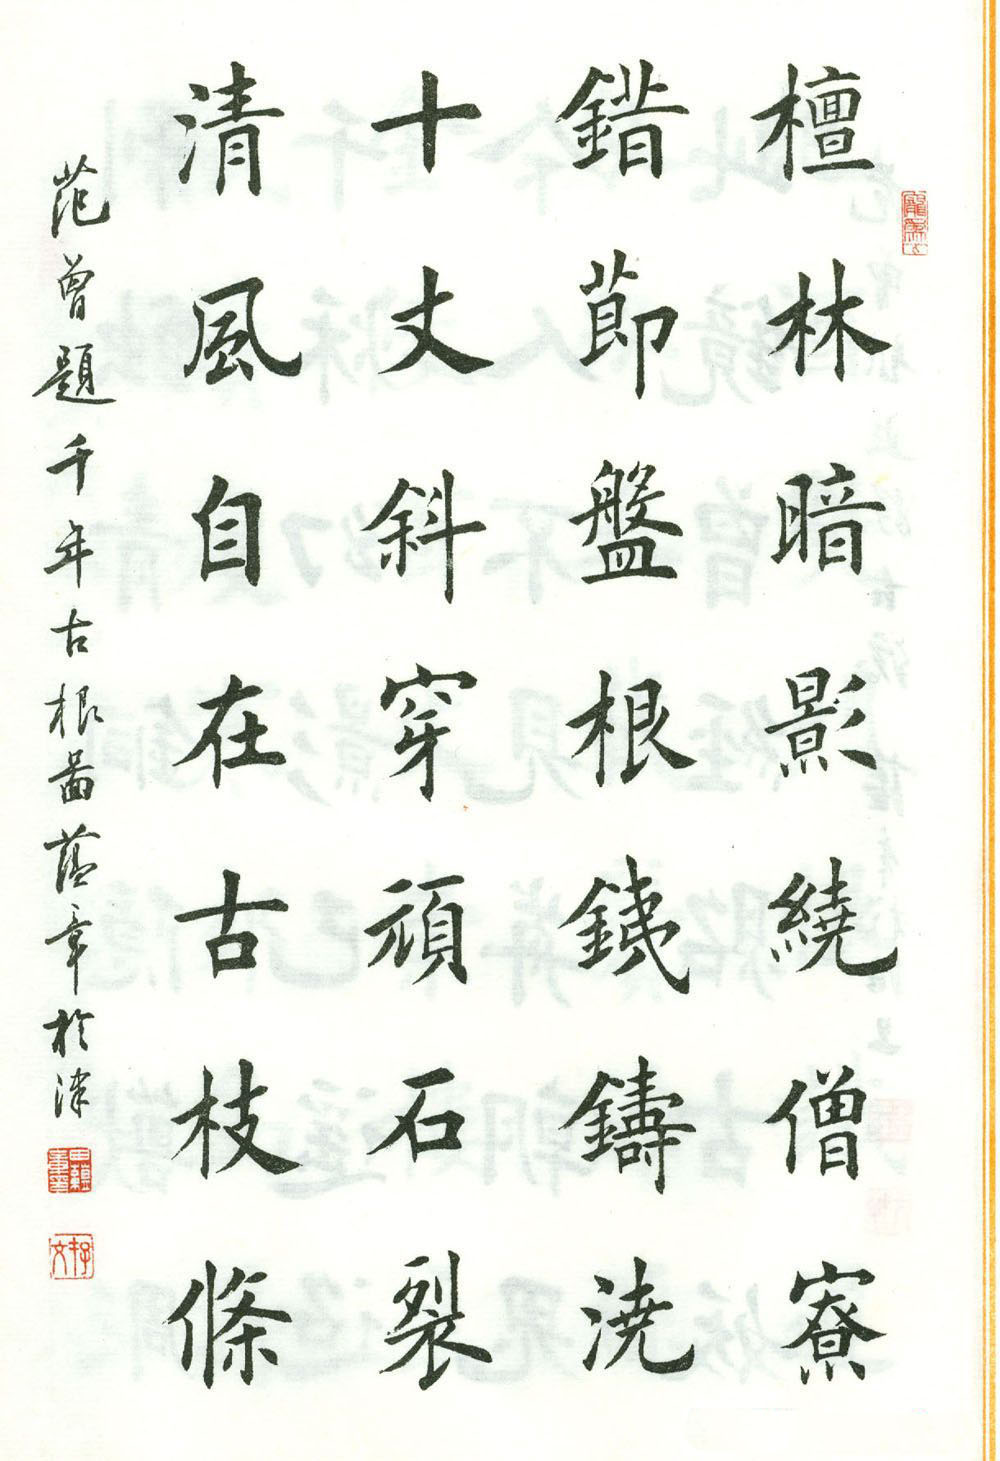 檀林暗影繞僧寮
錯節盤根鐵鑄澆
十丈斜穿頑石裂
清風自在古枝條
范曾題千年古根圖蘊章於津